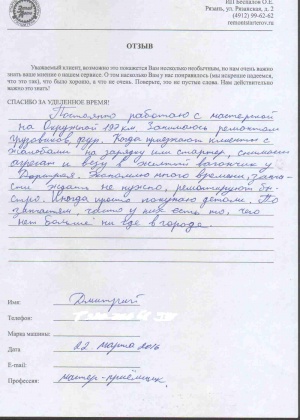 ИП Беспалов О.Е.
Рязань, ул. Рязанская, д. 2
(4912) 99-62-62
remontstarterov.ru
ОТЗЫВ
Уважаемый клиент, возможно это покажется Вам несколько необычным, но нам очень важно
знать ваше мнение о нашем сервисе. О том насколько Вам у нас понравилось (мы искренне надеемся,
что это так), что было хорошо, а что не очень. Поверьте, это не пустые слова. Нам действительно
важно это знать!
СПАСИБО ЗА УДЕЛЕННОЕ ВРЕМЯ!
Постоянно работаю с мастерской
на Окружной 197 км. Занимаюсь ремонтом
грузовиков, фур. Когда приезжают клиенты с
жалобами на зарядку или стартер, снимаем
агрегат и везу в желтый вагончик у
Экономлю много времени, запча-
сти ждать не нужно, ремонтируют бы-
стро. Иногда просто покупаю детали. По
запчастям, часто у них есть то, чего
нет больше ни где в городе.
Имя: Дмитрий
Телефон:
Марка машины:
Дата 22 марта 2016
E-mail:
Профессия: мастер-приёмщик